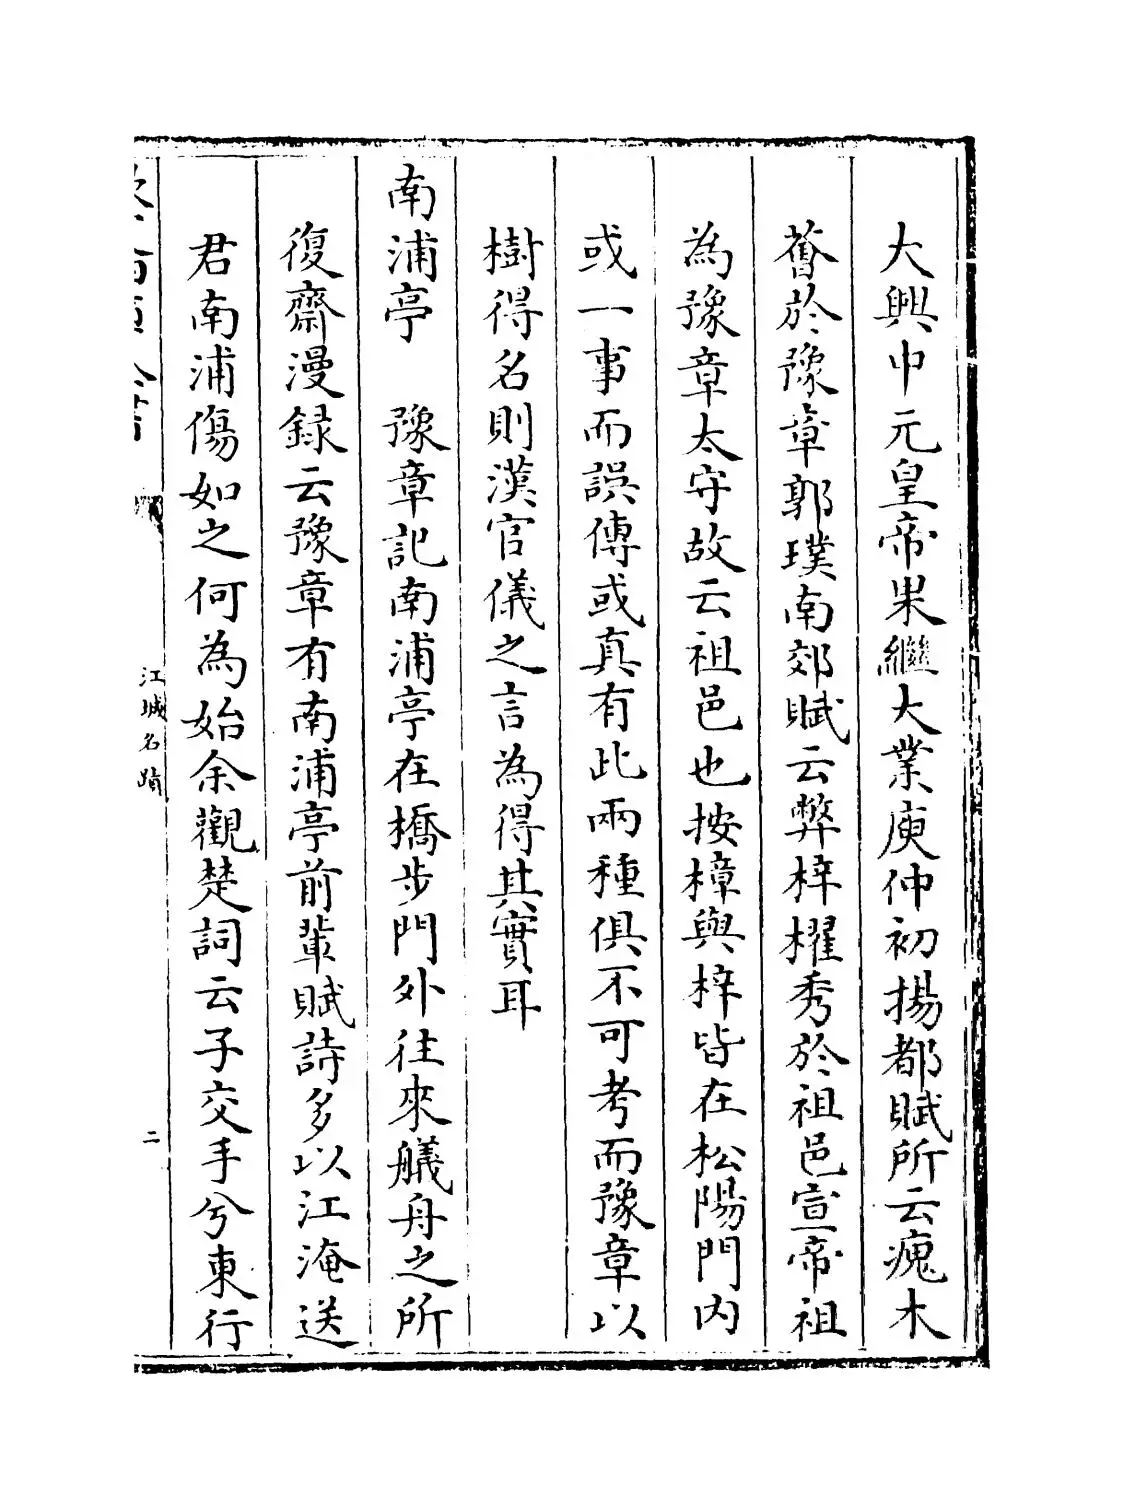 大興中元皇帝果繼大業庾仲初揚都賦所云瘣木
薈於豫章郭璞南郊賦云弊梓擢秀於祖邑宣帝祖
為豫章太守故云祖邑也按樟與梓皆在松陽門内
或一事而誤傳或真有此兩種俱不可考而豫章以
樹得名則漢官儀之言為得其實耳
南浦亭　豫章記南浦亭在橋步門外往來艤舟之所
復齋漫録云豫章有南浦亭前輩賦詩多以江淹送
君南浦傷如之何為始余觀楚詞云子交手兮東行
江城名蹟
二